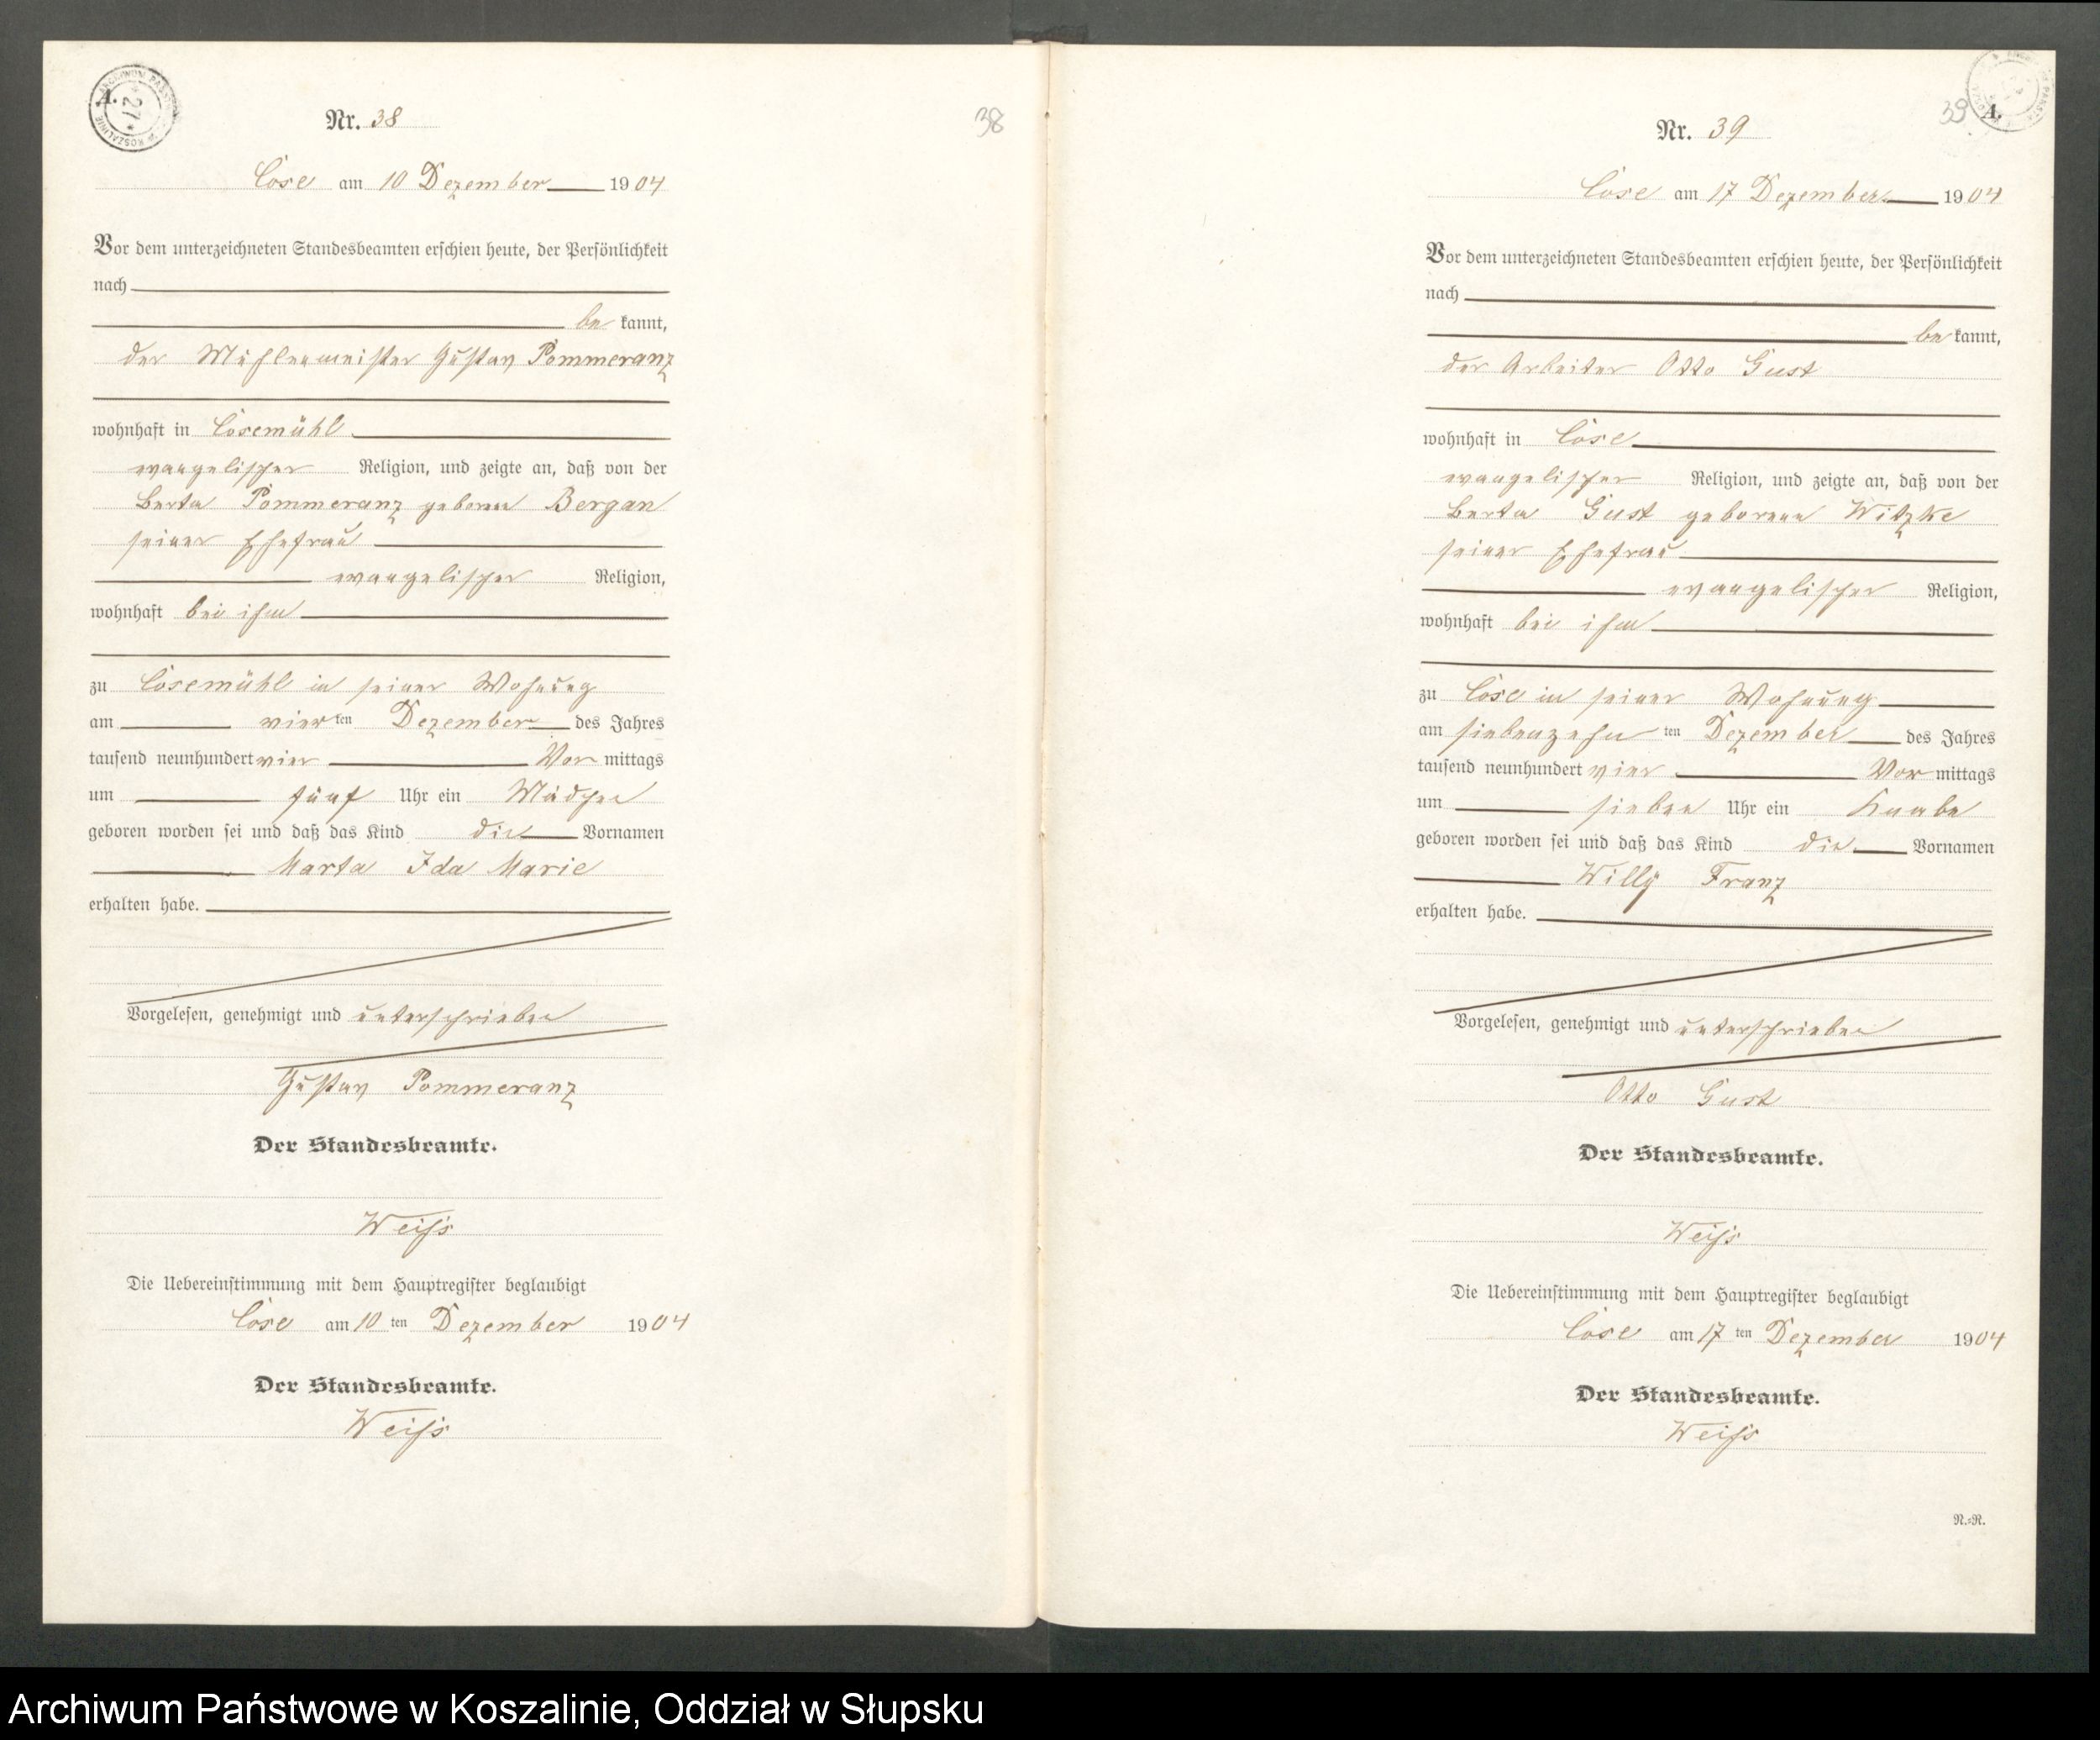 A.
ARCHIWUM PAŃSTWOWE W KOSZALINIE
27
Nr. 38
38
Cose am 10 Dezember 1904
Vor dem unterzeichneten Standesbeamten erschien heute, der Persönlichkeit
nach
be kannt,
der Mühlenmeister Gustav Pommeranz
wohnhaft in Cosemühl
evangelischer Religion, und zeigte an, daß von der
Berta Pommeranz geborene Bergan
seiner Ehefrau
evangelischer Religion,
wohnhaft bei ihm
zu Cosemühl in seiner Wohnung
am vier ten Dezember des Jahres
tausend neunhundert vier Vor mittags
um fünf Uhr ein Mädchen
geboren worden sei und daß das Kind die Vornamen
Marta Ida Marie
erhalten habe.
Vorgelesen, genehmigt und unterschrieben
Gustav Pommeranz
Der Standesbeamte.
Weiß
Die Uebereinstimmung mit dem Hauptregister beglaubigt
Cose am 10 ten Dezember 1904
Der Standesbeamte.
Weiß
39
A.
Nr. 39
Cose am 17 Dezember 1904
Vor dem unterzeichneten Standesbeamten erschien heute, der Persönlichkeit
nach
be kannt,
der Arbeiter Otto Gust
wohnhaft in Cose
evangelischer Religion, und zeigte an, daß von der
Berta Gust geborene Witzke
seiner Ehefrau
evangelischer Religion,
wohnhaft bei ihm
zu Cose in seiner Wohnung
am siebenzehn ten Dezember des Jahres
tausend neunhundert vier Vor mittags
um sieben Uhr ein Knabe
geboren worden sei und daß das Kind die Vornamen
Willy Franz
erhalten habe.
Vorgelesen, genehmigt und unterschrieben
Otto Gust
Der Standesbeamte.
Weiß
Die Uebereinstimmung mit dem Hauptregister beglaubigt
Cose am 17 ten Dezember 1904
Der Standesbeamte.
Weiß
N.=R.
Archiwum Państwowe w Koszalinie, Oddział w Słupsku